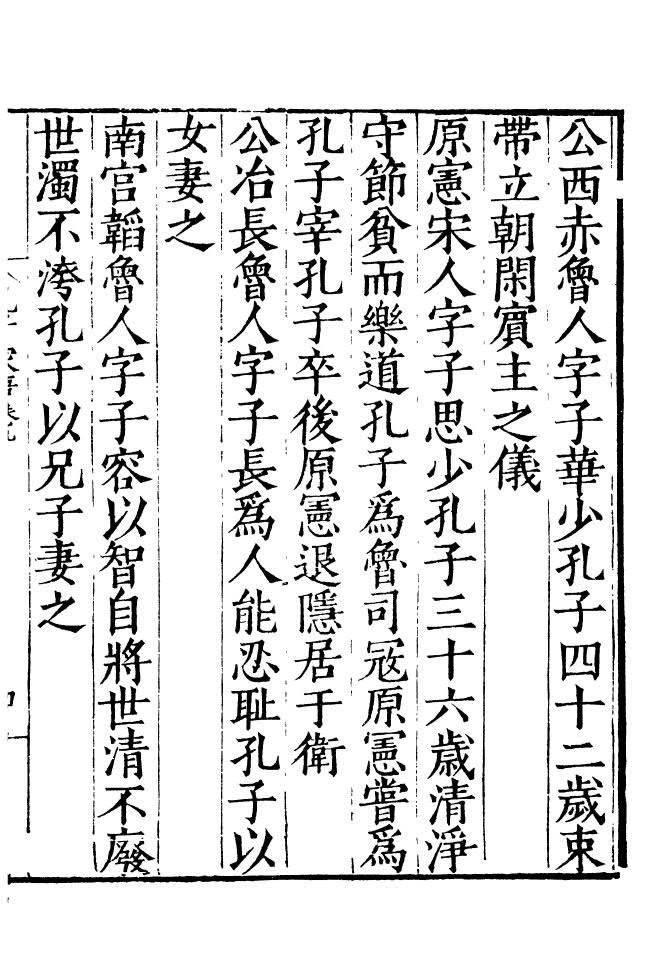 公西赤魯人字子華少孔子四十二歲束
帶立朝閑賔主之儀
原憲宋人字子思少孔子三十六歲清淨
守節貧而樂道孔子爲魯司冦原憲嘗爲
孔子宰孔子卒後原憲退隱居于衛
公冶長魯人字子長爲人能忍耻孔子以
女妻之
南宫韜魯人字子容以智自將世清不廢
世濁不洿孔子以兄子妻之